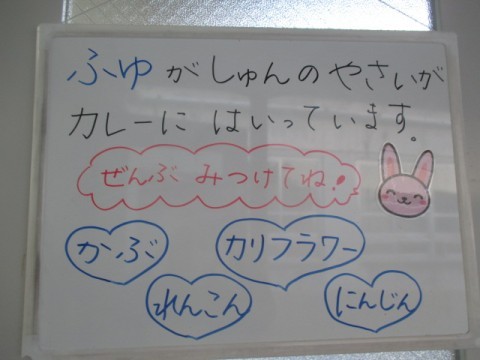 ふゆがしゅんのやさいが
カレーに はいっています。
ぜんぶ みつけてね!
かぶ
カリフラワー
れんこん
にんじん